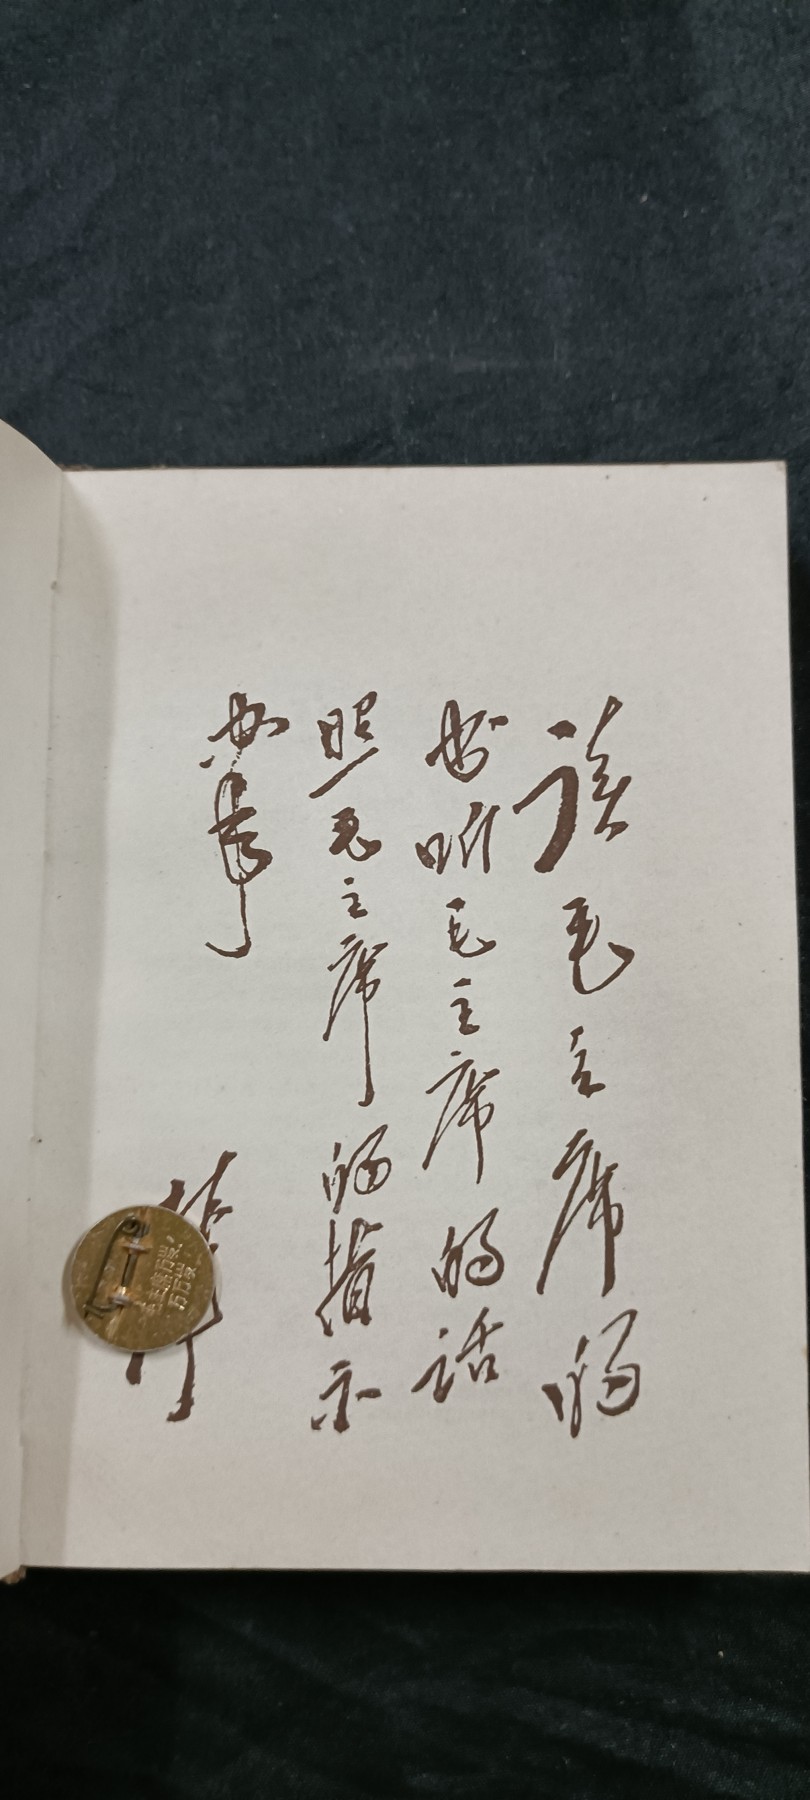 读毛主席的
书听毛主席的话
照毛主席的指示
办事
万岁！
万万岁！